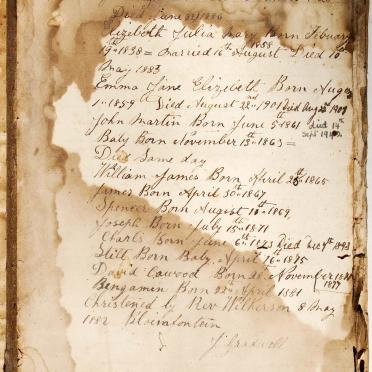 Died June 21 1886
Elizebeth Julia Mary Born Febuary
19th 1838 = Married 16th August 1858 Died 10th
May 1883
Emma Jane Elizibeth Born Augus
1 1859 Died August 22nd 1901 Died Aug 22nd 1901
John Martin Born June 5th 1861 died 14th
Baby Born November 13th 1863 = Sept
Died Same day
William James Born April 28th 1865
James Born April 30th 1867
Spencer Born August 10th 1869
Joseph Born July 15th 1871
Charls Born June 6th 1873 Died Dec 9th 1893
Still Born Baby April 16th 1875
David Cawood Born November 1877
Bengamen Born 22nd April 1881
Christened by Rev Wilkerson 8 May
1882 Bloimfontein
J Gradwell